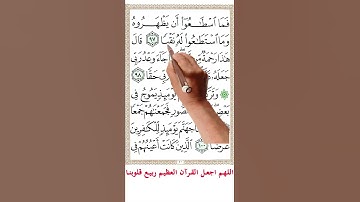 فَمَا ٱسْطَـٰعُوٓا۟ أَن يَظْهَرُوهُ
وَمَا ٱسْتَطَـٰعُوا۟ لَهُۥ نَقْبًا ٩٧ قَالَ
هَـٰذَا رَحْمَةٌ جَآءَ وَعْدُ رَبِّى
جَعَلَهُۥ حَقًّا ٩٨
يَوْمَئِذٍ يَمُوجُ فِى
فَجَمَعْنَـٰهُمْ جَمْعًا
جَهَنَّمَ يَوْمَئِذٍ لِّلْكَـٰفِرِينَ
عَرْضًا ١٠٠ ٱلَّذِينَ كَانَتْ أَعْيُنُهُمْ فِى
اللهم اجعل القرآن العظيم ربيع قلوبنا